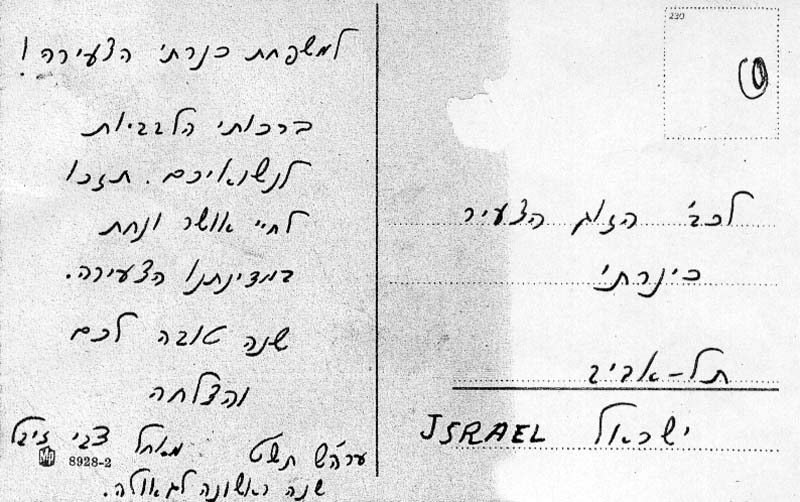 למשפחת כנרתי הצעירה!
ברכותי הלבביות
לנשואיכם. תזכו
לחיי אושר ונחת
במדינתנו הצעירה.
שנה טובה לכם
והצלחה
מאחל צבי זיבל
ערה"ש תש"ט
שנה ראשונה לגאולה.
8928-2
230
לכב' הזוג הצעיר
כינרתי
תל-אביב
ישראל ISRAEL